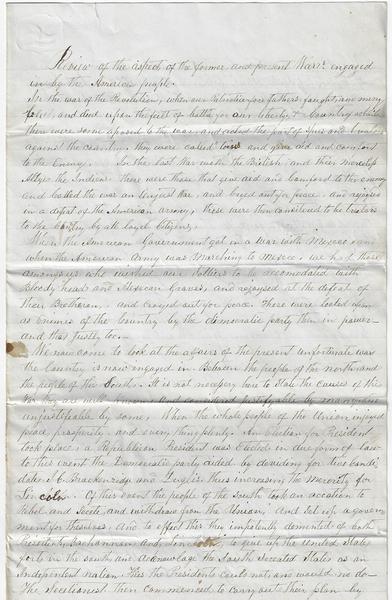 Review of the aspect of the former and present Wars engaged
in by the American people.
In the war of the Revolution, when our Patriotic forefathers fought, as men
fell and died upon the field of battle for our liberty & Country while
there were some opposed to the war and acted the part of Spies and
against the Country, they were called tories and gave aid and comfort
to the Enemy. In the last War with the British and their merciless
Allys the Indians there were those that gave aid and Comford to the enemy
and called the war an unjust War, and cryed out for peace. and rejoiced
in a defeat of the American army, these were then considered to be traitors
to the Country by all loyal Citizens.
When the American Government got in a war with Mexico, and
when the American Army was Marching to Mexico, we had those
amongst us who wished our soldiers to be accomodated with
Bloody hands and Mexican Graves, and rejoysed at the defeat of
their Bretheren. and cryed out for peace. These were looked upon
as enemies of the Country by the democratic party then in power
and that justly too.
We now come to look at the affairs of the present unfortunate war
the Country is now engaged in Between the people of the north and
the people of the South. It is not necessary here to State the causes of this
War they are well known and considered Justifyable by many also
unjustifiable by some, When the whole people of the Union enjoyed
peace prosperity and every thing plenty. An election for President
took place, a Republican President was Elected in due form of law
to this event the Democratic party aided by deviding for two candi
dates J C Breckenridge and Duglis thus increasing the Majority for
Lincoln. Of this event the people of the South took an occation to
Rebel and Secede and withdraw from the Union, and Set up a govern
ment for themselves. And to effect this they impatiently demented of both
Presidents, Buchannan and Lincoln to give up the United States
forts in the south and Acknowlage the South Seceated States as an
Independent nation This the Presidents could not and would no do
The Secetionist then commenced to carry out their plan by